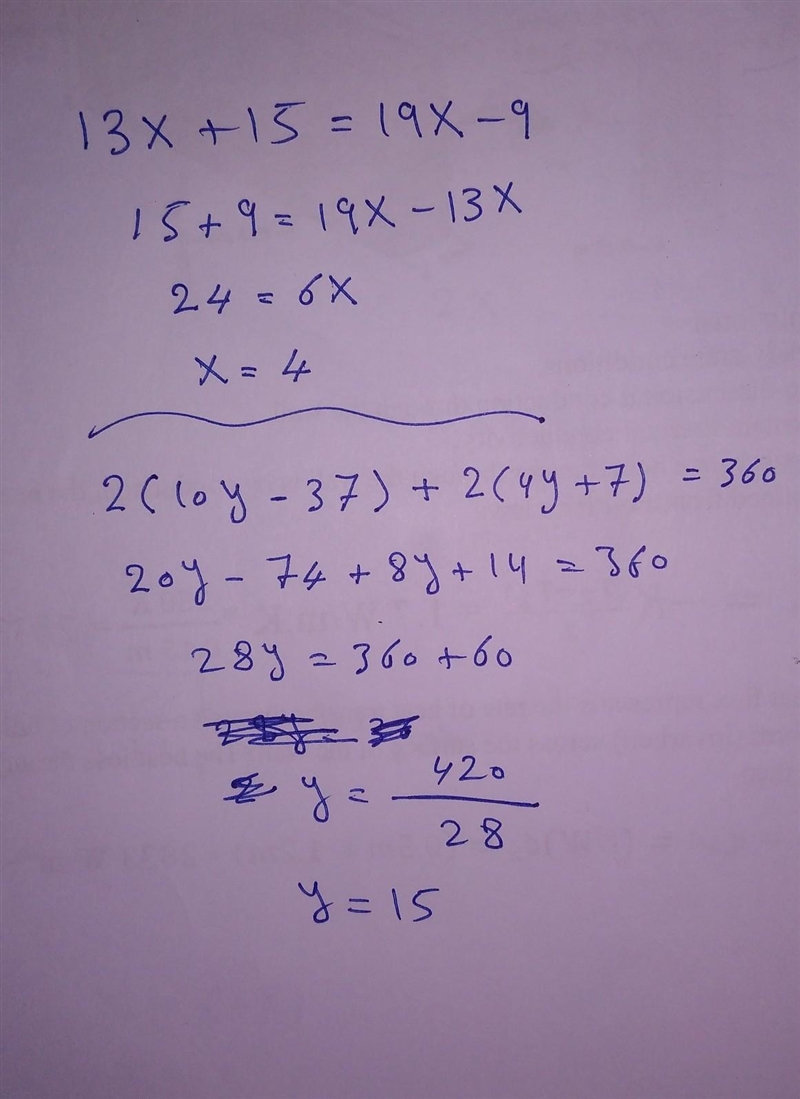 13x + 15 = 19x - 9
15 + 9 = 19x - 13x
24 = 6x
x = 4
2(10y - 37) + 2(4y + 7) = 360
20y - 74 + 8y + 14 = 360
28y = 360 + 60
y = 420/28
y = 15